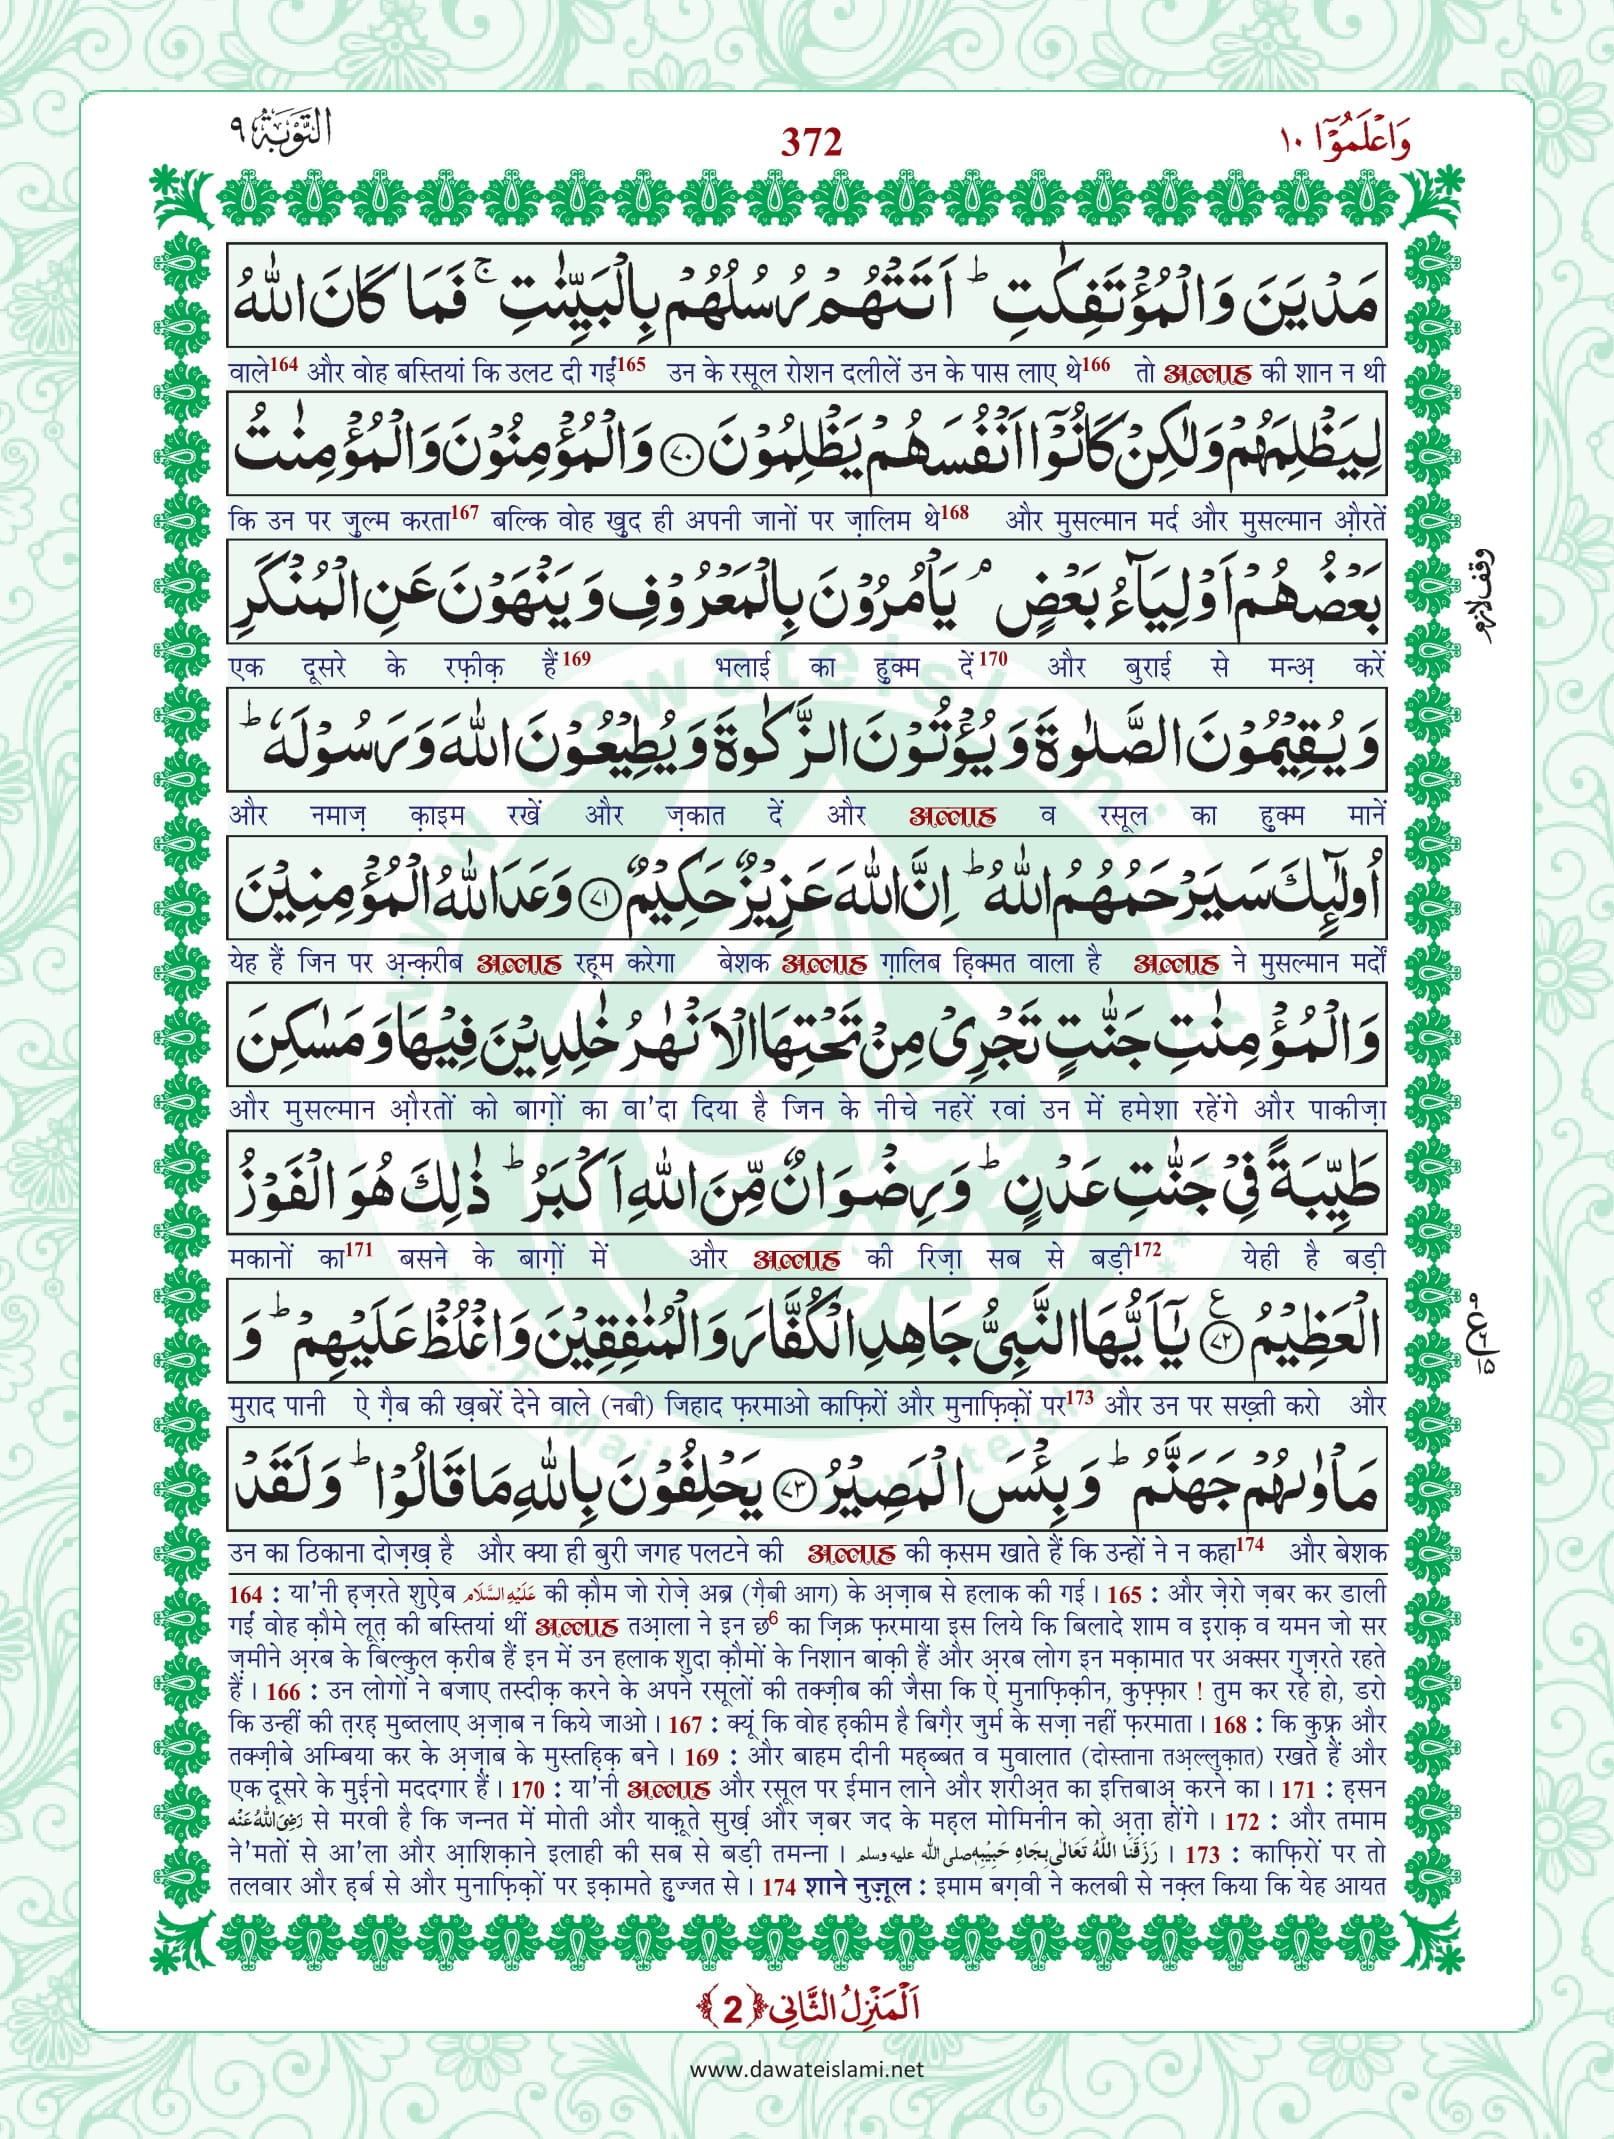 وَاعْلَمُوْۤا ١٠
372
التَّوْبَة ٩
مَدْیَنَ وَالْمُؤْتَفِكٰتِ ؕ اَتَتْهُمْ رُسُلُهُمْ بِالْبَیِّنٰتِ ۚ فَمَا كَانَ اللّٰهُ
वाले164 और वोह बस्तियां कि उलट दी गईं165 उन के रसूल रोशन दलीलें उन के पास लाए थे166 तो अल्लाह की शान न थी
لِیَظْلِمَهُمْ وَلٰكِنْ كَانُوْۤا اَنْفُسَهُمْ یَظْلِمُوْنَ ﴿۷۰﴾ وَالْمُؤْمِنُوْنَ وَالْمُؤْمِنٰتُ
कि उन पर ज़ुल्म करता167 बल्कि वोह ख़ुद ही अपनी जानों पर ज़ालिम थे168 और मुसल्मान मर्द और मुसल्मान औ़रतें
بَعْضُهُمْ اَوْلِیَآءُ بَعْضٍ ۘ یَاْمُرُوْنَ بِالْمَعْرُوْفِ وَیَنْهَوْنَ عَنِ الْمُنْكَرِ
وقف لازم
एक दूसरे के रफ़ीक़ हैं169 भलाई का हुक्म दें170 और बुराई से मन्अ़ करें
وَیُقِیْمُوْنَ الصَّلٰوةَ وَیُؤْتُوْنَ الزَّكٰوةَ وَیُطِیْعُوْنَ اللّٰهَ وَرَسُوْلَهٗ ؕ
और नमाज़ क़ाइम रखें और ज़कात दें और अल्लाह व रसूल का हुक्म मानें
اُولٰٓىِٕكَ سَیَرْحَمُهُمُ اللّٰهُ ؕ اِنَّ اللّٰهَ عَزِیْزٌ حَكِیْمٌ ﴿۷۱﴾ وَعَدَ اللّٰهُ الْمُؤْمِنِیْنَ
येह हैं जिन पर अ़न्क़रीब अल्लाह रह़्म करेगा बेशक अल्लाह ग़ालिब ह़िक्मत वाला है अल्लाह ने मुसल्मान मर्दों
وَالْمُؤْمِنٰتِ جَنّٰتٍ تَجْرِیْ مِنْ تَحْتِهَا الْاَنْهٰرُ خٰلِدِیْنَ فِیْهَا وَمَسٰكِنَ
और मुसल्मान औ़रतों को बाग़ों का वा'दा दिया है जिन के नीचे नहरें रवां उन में हमेशा रहेंगे और पाकीज़ा
طَیِّبَةً فِیْ جَنّٰتِ عَدْنٍ ؕ وَرِضْوَانٌ مِّنَ اللّٰهِ اَكْبَرُ ؕ ذٰلِكَ هُوَ الْفَوْزُ
मकानों का171 बसने के बाग़ों में और अल्लाह की रिज़ा सब से बड़ी172 येही है बड़ी
الْعَظِیْمُ ﴿۷۲﴾ ع یٰۤاَیُّهَا النَّبِیُّ جَاهِدِ الْكُفَّارَ وَالْمُنٰفِقِیْنَ وَاغْلُظْ عَلَیْهِمْ ؕ وَ
मुराद पानी ऐ ग़ैब की ख़बरें देने वाले (नबी) जिहाद फ़रमाओ काफ़िरों और मुनाफ़िक़ों पर173 और उन पर सख़्ती करो और
مَاْوٰىهُمْ جَهَنَّمُ ؕ وَبِئْسَ الْمَصِیْرُ ﴿۷۳﴾ یَحْلِفُوْنَ بِاللّٰهِ مَا قَالُوْا ؕ وَلَقَدْ
उन का ठिकाना दोज़ख़ है और क्या ही बुरी जगह पलटने की अल्लाह की क़सम खाते हैं कि उन्हों ने न कहा174 और बेशक
164 : या'नी ह़ज़रते शुऐ़ब عَلَیْهِ السَّلَام की क़ौम जो रोज़े अब्र (ग़ैबी आग) के अ़ज़ाब से हलाक की गई । 165 : और ज़ेरो ज़बर कर डाली
गईं वोह क़ौमे लूत़ की बस्तियां थीं अल्लाह तआ़ला ने इन छ6 का ज़िक्र फ़रमाया इस लिये कि बिलादे शाम व इराक़ व यमन जो सर
ज़मीने अ़रब के बिल्कुल क़रीब हैं इन में उन हलाक शुदा क़ौमों के निशान बाक़ी हैं और अ़रब लोग इन मक़ामात पर अक्सर गुज़रते रहते
हैं । 166 : उन लोगों ने बजाए तस्दीक़ करने के अपने रसूलों की तक्ज़ीब की जैसा कि ऐ मुनाफ़िक़ीन, कुफ़्फ़ार ! तुम कर रहे हो, डरो
कि उन्हीं की त़रह़ मुब्तलाए अ़ज़ाब न किये जाओ । 167 : क्यूं कि वोह ह़कीम है बिग़ैर जुर्म के सज़ा नहीं फ़रमाता । 168 : कि कुफ़्र और
तक्ज़ीबे अम्बिया कर के अ़ज़ाब के मुस्तह़िक़ बने । 169 : और बाहम दीनी मह़ब्बत व मुवालात (दोस्ताना तअ़ल्लुक़ात) रखते हैं और
एक दूसरे के मुई़नो मददगार हैं । 170 : या'नी अल्लाह और रसूल पर ईमान लाने और शरीअ़त का इत्तिबाअ़ करने का । 171 : ह़सन
رَضِیَ اللّٰهُ عَنْه से मरवी है कि जन्नत में मोती और याक़ूते सुर्ख़ और ज़बर जद के मह़ल मोमिनीन को अ़त़ा होंगे । 172 : और तमाम
ने'मतों से आ'ला और आ़शिक़ाने इलाही की सब से बड़ी तमन्ना । رَزَقَنَا اللّٰهُ تَعَالٰی بِجَاهِ حَبِیْبِهٖ صلى الله عليه وسلم । 173 : काफ़िरों पर तो
तलवार और ह़र्ब से और मुनाफ़िक़ों पर इक़ामते ह़ुज्जत से । 174 शाने नुज़ूल : इमाम बग़वी ने कलबी से नक़्ल किया कि येह आयत
اَلْمَنْزِلُ الثَّانِی ﴿2﴾
www.dawateislami.net